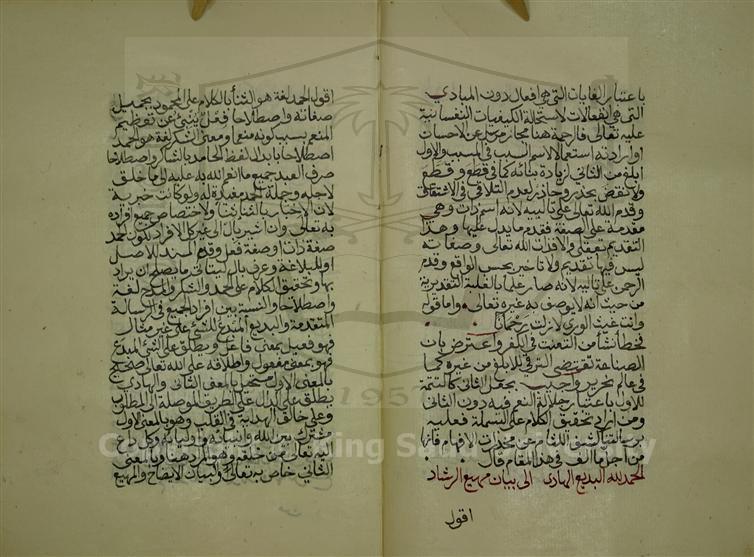 باعتبار الغايات التي هي افعال دون المبادي
التي هي انفعالات لاستحالة الكيفيات النفسانية
عليه تعالى فالرحمة هنا مجاز مرسل عن الاحسان
او ارادته استعمالا لاسم السبب في المسبب والاول
ابلغ من الثاني لزيادة بنائه كما في قطع وقطّع
ولا نقض بحذر وحاذر لعدم التلاقي في الاشتقاق
وقدم الله تعالى على تالييه لانه اسم ذات وهي
مقدمة على الصفة فقدم ما يدل عليها وهذا
التقديم تعقلي والا فذات الله تعالى وصفاته
ليس فيها تقديم ولا تاخير بحسب الواقع وقدم
الرحمن على تاليه لانه صار علما بالغلبة التقديرية
من حيث انه لا يوصف به غيره تعالى واما قوله
وانت غيث الورى لا زلت رحمانا
فخطأ نشأ من التعنت في الكفر واعترض بان
الصناعة تقتضي الترقي للابلغ من غيره كما
في عالم نحرير واجيب بجعل الثاني كالتتمة
للاول باعتبار جلالة النعم فيه دون الثاني
ومن اراد تحقيق الكلام على البسملة فعليه
برسالتنا كشف اللثام عن مخدرات الافهام فانها
من اجل ما الف في هذا المقام قال
الحمد لله البديع الهادي الى بيان مهيع الرشاد
اقول
اقول الحمد لغة هو الثناء بالكلام على المحمود بجميل
صفاته واصطلاحا فعل ينبئ عن تعظيم
المنعم بسبب كونه منعما ومعنى الشكر لغة هو الحمد
اصطلاحا بابدال لفظ الحامد بالشاكر واصطلاحا
صرف العبد جميع ما انعم الله به عليه الى ما خلق
لاجله وجملة الحمد مفيدة له ولو كانت خبرية
لان الاخبار بالثناء ثناء ولاختصاص جميع افراده
به تعالى وان اشير بال الى غير كالافراد لكون الحمد
صفة ذات او صفة فعل وقدم المسند الاصل
او للبلاغة وعرف بال ليتاتى ما يصلح ان يراد
بها وتحقيق الكلام على الحمد والشكر والمدح لغة
واصطلاحا والنسبة بين افراد الجميع في الرسالة
المتقدمة والبديع المبدع للشيء على غير مثال
فهو فعيل بمعنى فاعل ويطلق على الشيء المبدع
فهو بمعنى مفعول واطلاقه على الله تعالى صحيح
بالمعنى الاول مستحيل بالمعنى الثاني والهادي
يطلق على الدال على الطريق الموصلة الى المطلوب
وعلى خالق الهداية في القلب وهو بالمعنى الاول
مشترك بين الله وانبيائه واوليائه وكل داع
الى الله تعالى من خلقه وهو المراد هنا وبالمعنى
الثاني خاص به تعالى والبيان الايضاح والمهيع
Copyright © King Saud University
1957